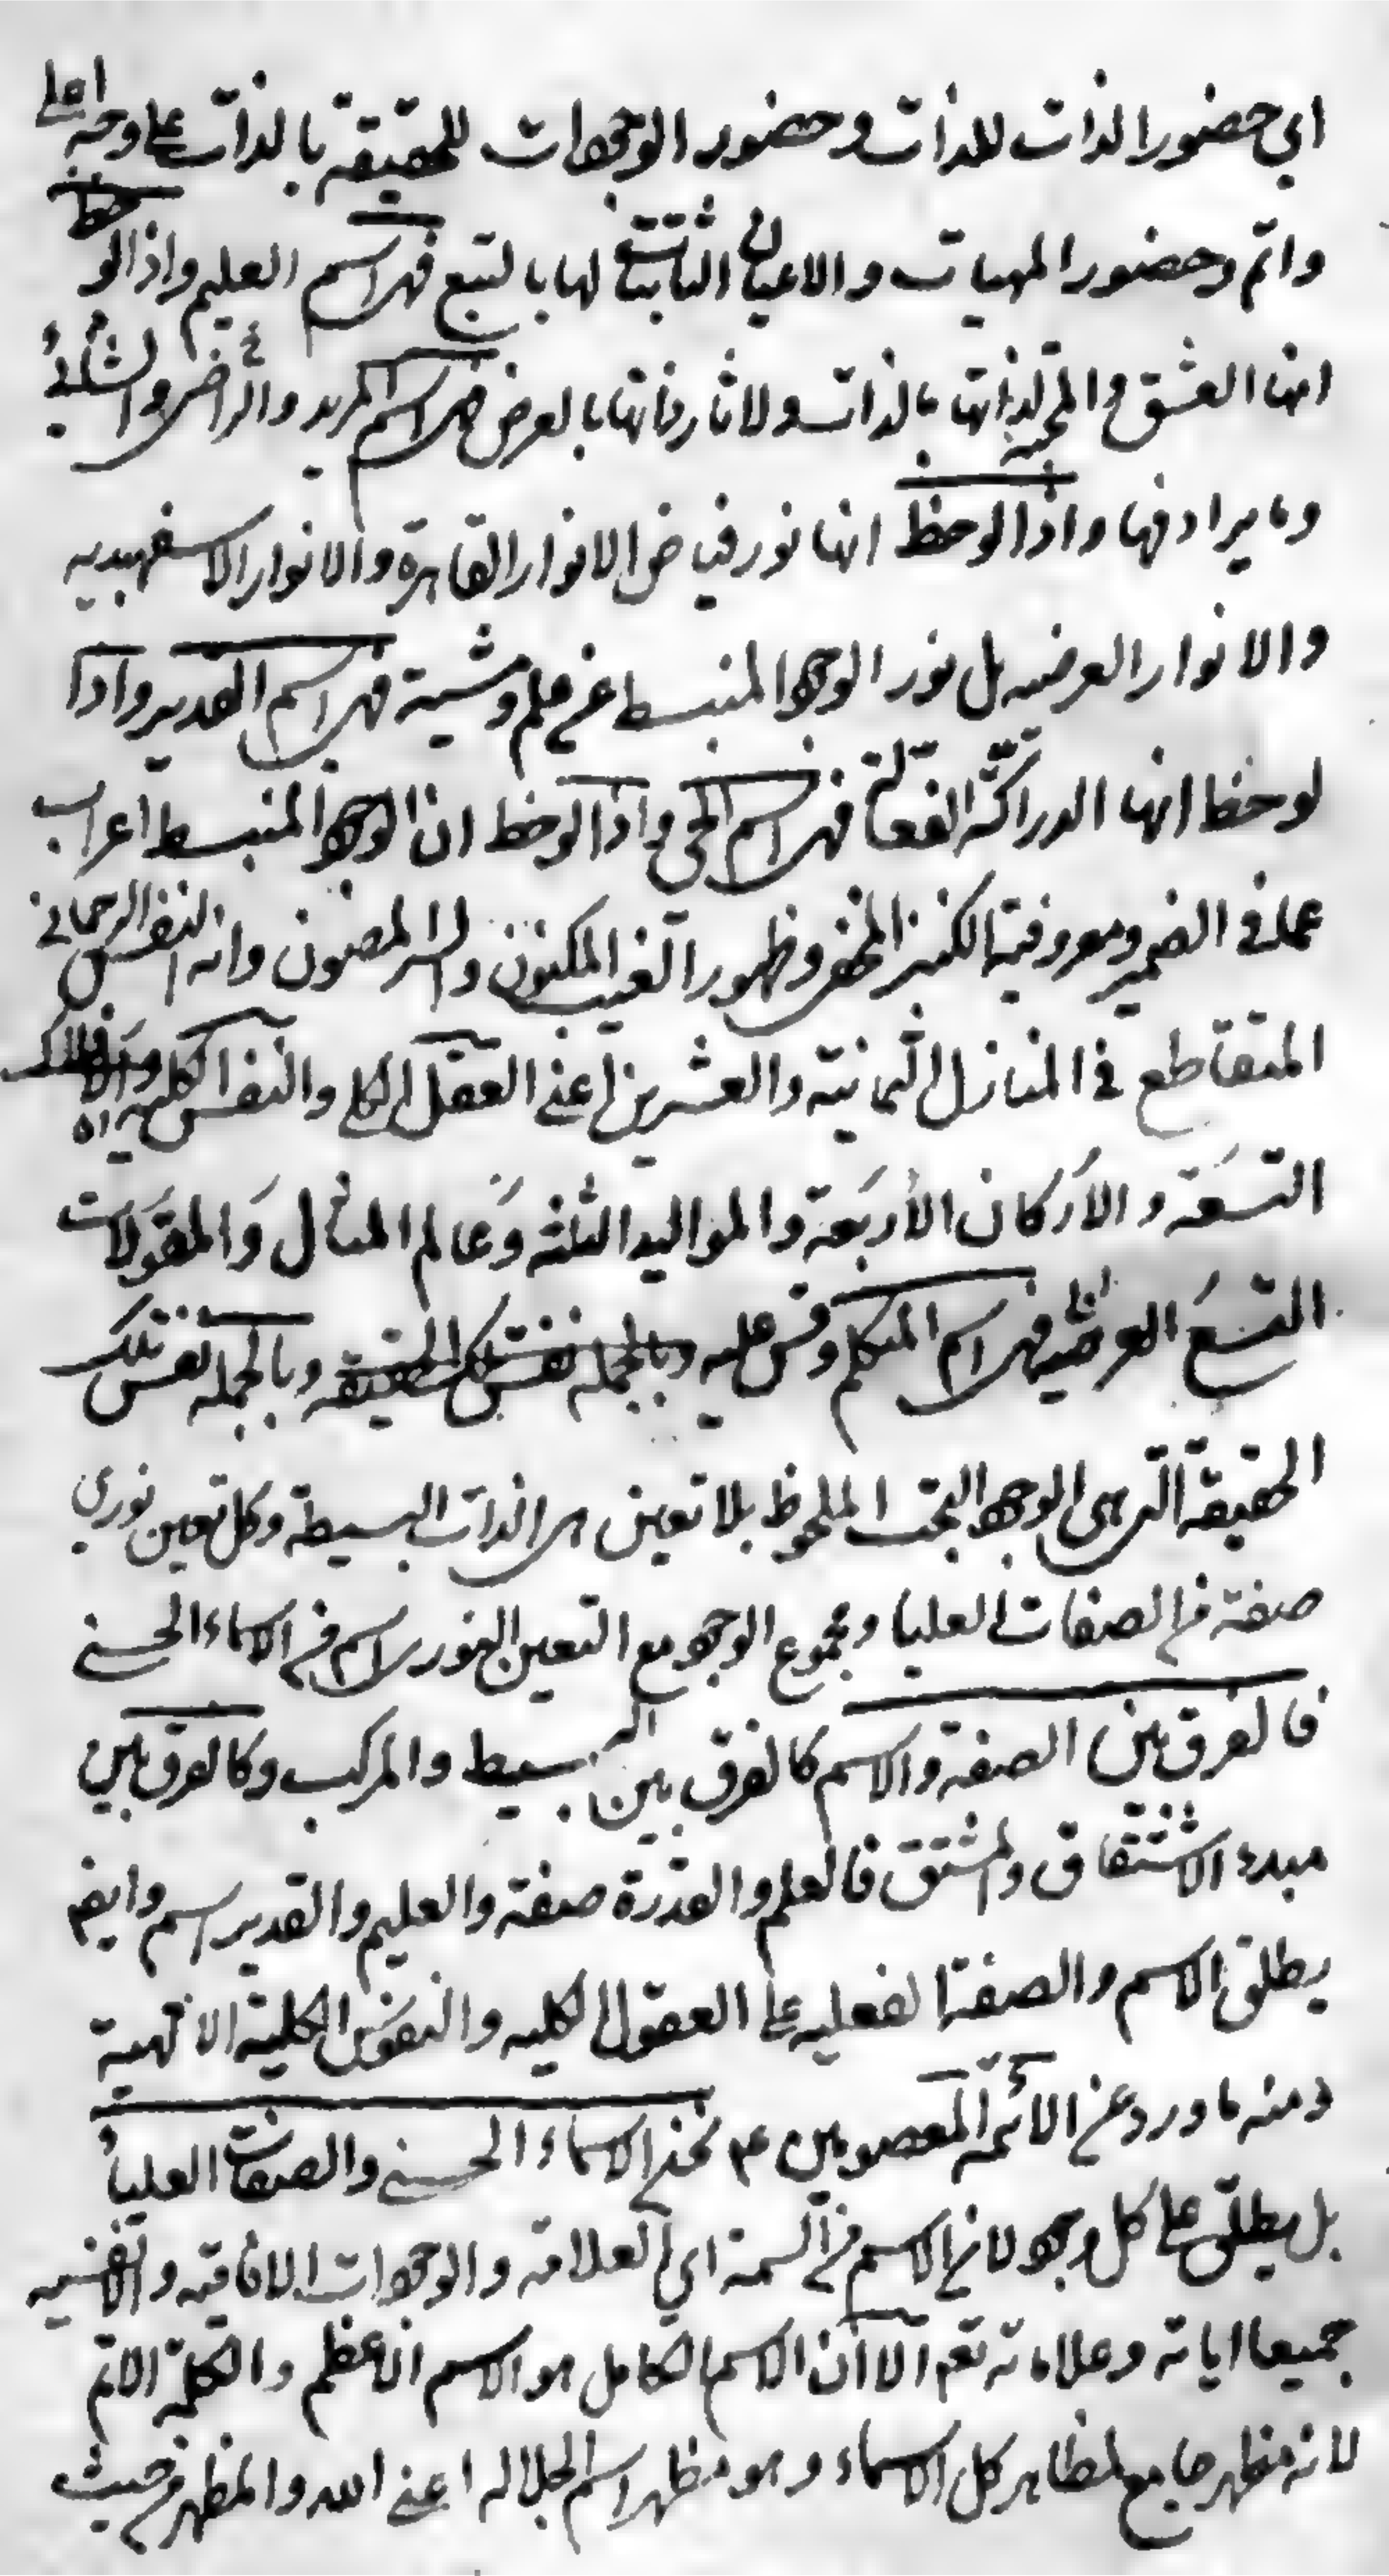 اي حضور الذات للذات وحضور الوجودات للحقيقة بالذات على وجه اعلى
واتم وحضور المهيات والاعيان الثابتة لها بالتبع فهى اسم العليم واذا لوحظ
انها العشق والمحبة لذاتها بالذات ولاثار ذاتها بالعرض فهى اسم المريد والراضى والشائى
وما يرادفها واذا لوحظ انها نور فياض الانوار القاهرة والانوار الاسفهبديه
والانوار العرضيه بل نور الوجود المنبسط عن علم ومشية فهى اسم القدير واذا
لوحظ انها الدراكة الفعالة فهى اسم الحى واذا لوحظ ان الوجود المنبسط اعراب
عما فى الضمير ومعروفية الكنز المخفى وظهور الغيب المكنون والسر المصون وانه النفس الرحمانى
المتقاطع فى المنازل الثمانية والعشرين اعنى العقل الكلى والنفس الكلية والافلاك
التسعة والاركان الأربعة والمواليد الثلثه وعالم المثال والمقولات
التسع العرضيه فهى اسم المتكلم وقس عليه وبالجمله نفس تلك الحقيقة وبالجمله نفس تلك
الحقيقة التى هى الوجود البحت الملحوظ بلا تعين هى الذات البسيطة وكل تعين نورى
صفة من الصفات العليا ومجموع الوجود مع التعين النورى اسم من الاسماء الحسنى
فالفرق بين الصفة والاسم كالفرق بين البسيط والمركب وكالفرق بين
مبدء الاشتقاق والمشتق فالعلم والقدرة صفة والعليم والقدير اسم وايضا
يطلق الاسم والصفة الفعليه على العقول الكليه والنفوس الكلية الالهية
ومنه ما ورد عن الائمة المعصومين ع نحن الاسماء الحسنى والصفات العليا
بل يطلق على كل وجود لان الاسم من السمة اي العلامة والوجودات الافاقيه والانفسيه
جميعا اياته وعلاماته نعم الا ان الاسم الكامل هو الاسم الاعظم والكلمة الاتم
لانه مظهر جامع لمظاهر كل الاسماء وهو مظهر اسم الجلاله اعنى الله والمظهر من حيث